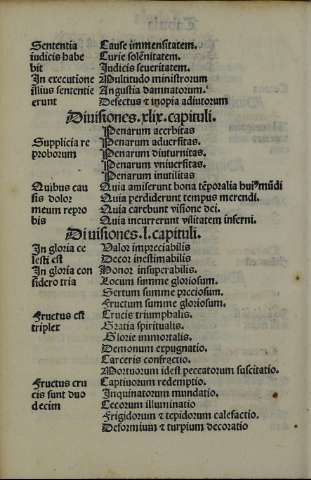 Sententia Cause immensitatem.
iudicis habe Curie solẽnitatem.
bit Iudicis seueritatem.
In executione Multitudo ministrorum
illius sententie Angustia damnatorum.
erunt Defectus ⁊ inopia adiutorum
Diuisiones .xlix. capituli.
Penarum acerbitas
Supplicia re Penarum aduersitas.
proborum Penarum diuturnitas.
Penarum vniuersitas.
Penarum inutilitas
Quibus cau Quia amiserunt bona tẽporalia huiꝰ mũdi
sis dolor Quia perdiderunt tempus merendi.
meum repro Quia carebunt visione dei.
bis Quia incurrerunt vilitatem inferni.
Diuisiones .l. capituli.
In gloria ce Valor impreciabilis
lesti est Decor inestimabilis
In gloria con Honor insuperabilis.
sidero tria Locum summe gloriosum.
Sertum summe preciosum.
Fructum summe gloriosum.
Fructus est Crucis triumphalis.
triplex Gratia spiritualis.
Glorie immortalis.
Demonum expugnatio.
Carceris confractio.
Mortuorum idest peccatorum suscitatio.
Fructus cru Captiuorum redemptio.
cis sunt duo Inquinatorum mundatio.
decim Cecorum illuminatio
Frigidorum ⁊ tepidorum calefactio.
Deformium ⁊ turpium decoratio